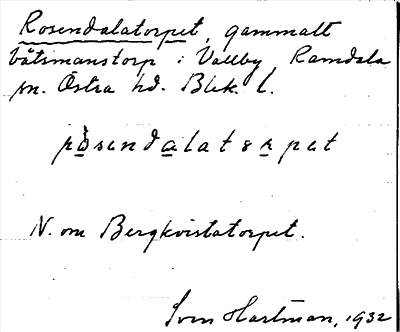 Rosendalatorpet, gammalt
båtsmanstorp i Vallby, Ramdala
sn. Östra hd. Blek. l.
N. om Bergkvistatorpet.
Sven Hartman, 1932